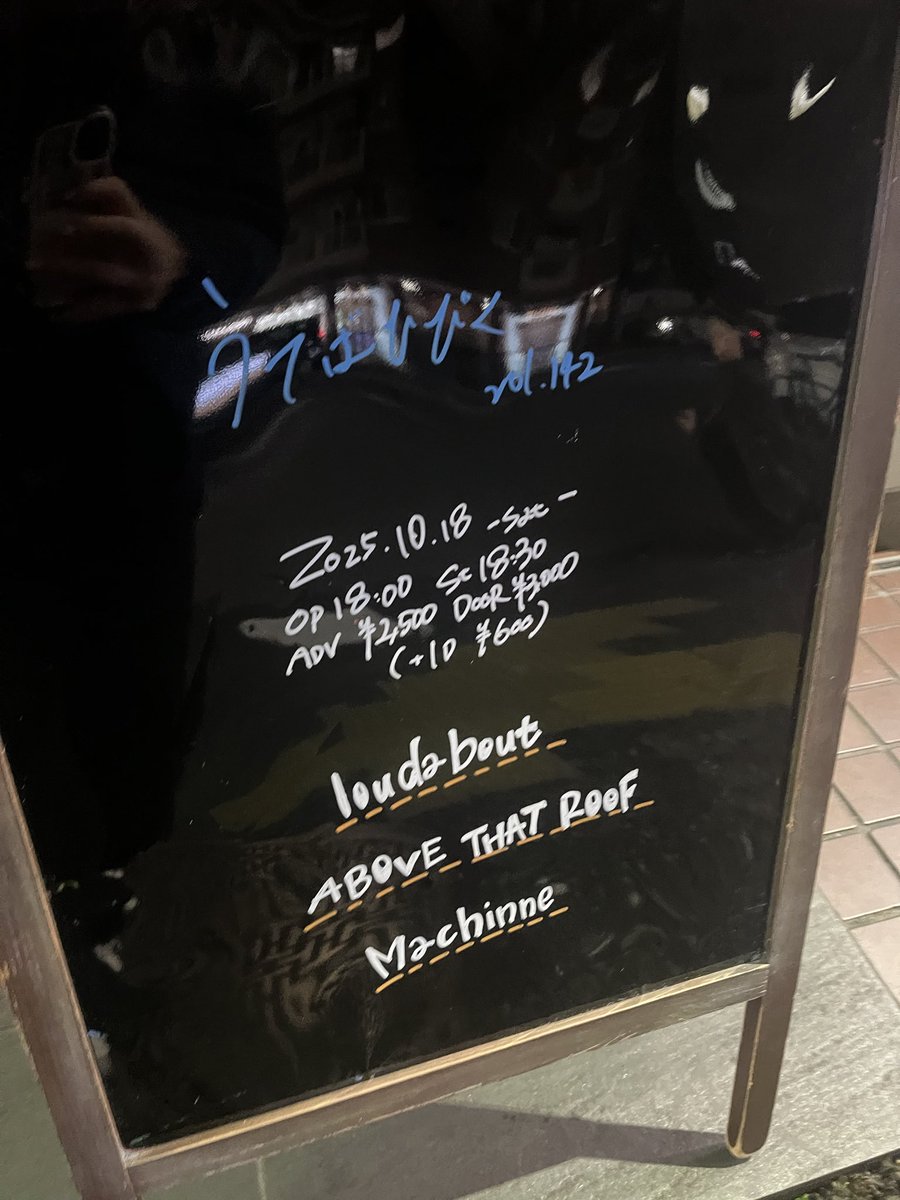 うてばひびく
vol.142
2025.10.18 -Sat-
OP 18:00 St 18:30
ADV ¥2,500 DOOR ¥3,000
(+1D ¥600)
loudabout
ABOVE THAT ROOF
Machinne